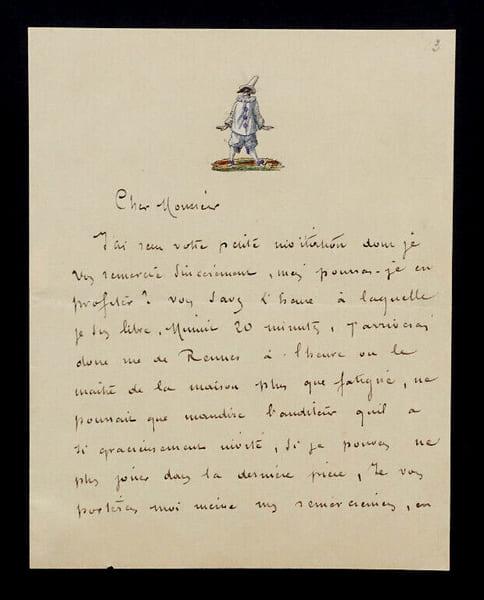 3
Cher Monsieur
J'ai reçu votre petite invitation dont je
vous remercie sincèrement, mais pourrai-je en
profiter? vous savez l'heure à laquelle
je suis libre, Minuit 20 minutes, j'arriverai
donc rue de Rennes à l'heure où le
maître de la maison plus que fatigué, ne
pourrait que maudire l'auditeur qu'il a
si gracieusement invité, si je pouvais ne
plus jouer dans la dernière pièce, Je vous
porterais moi même mes remerciements, en